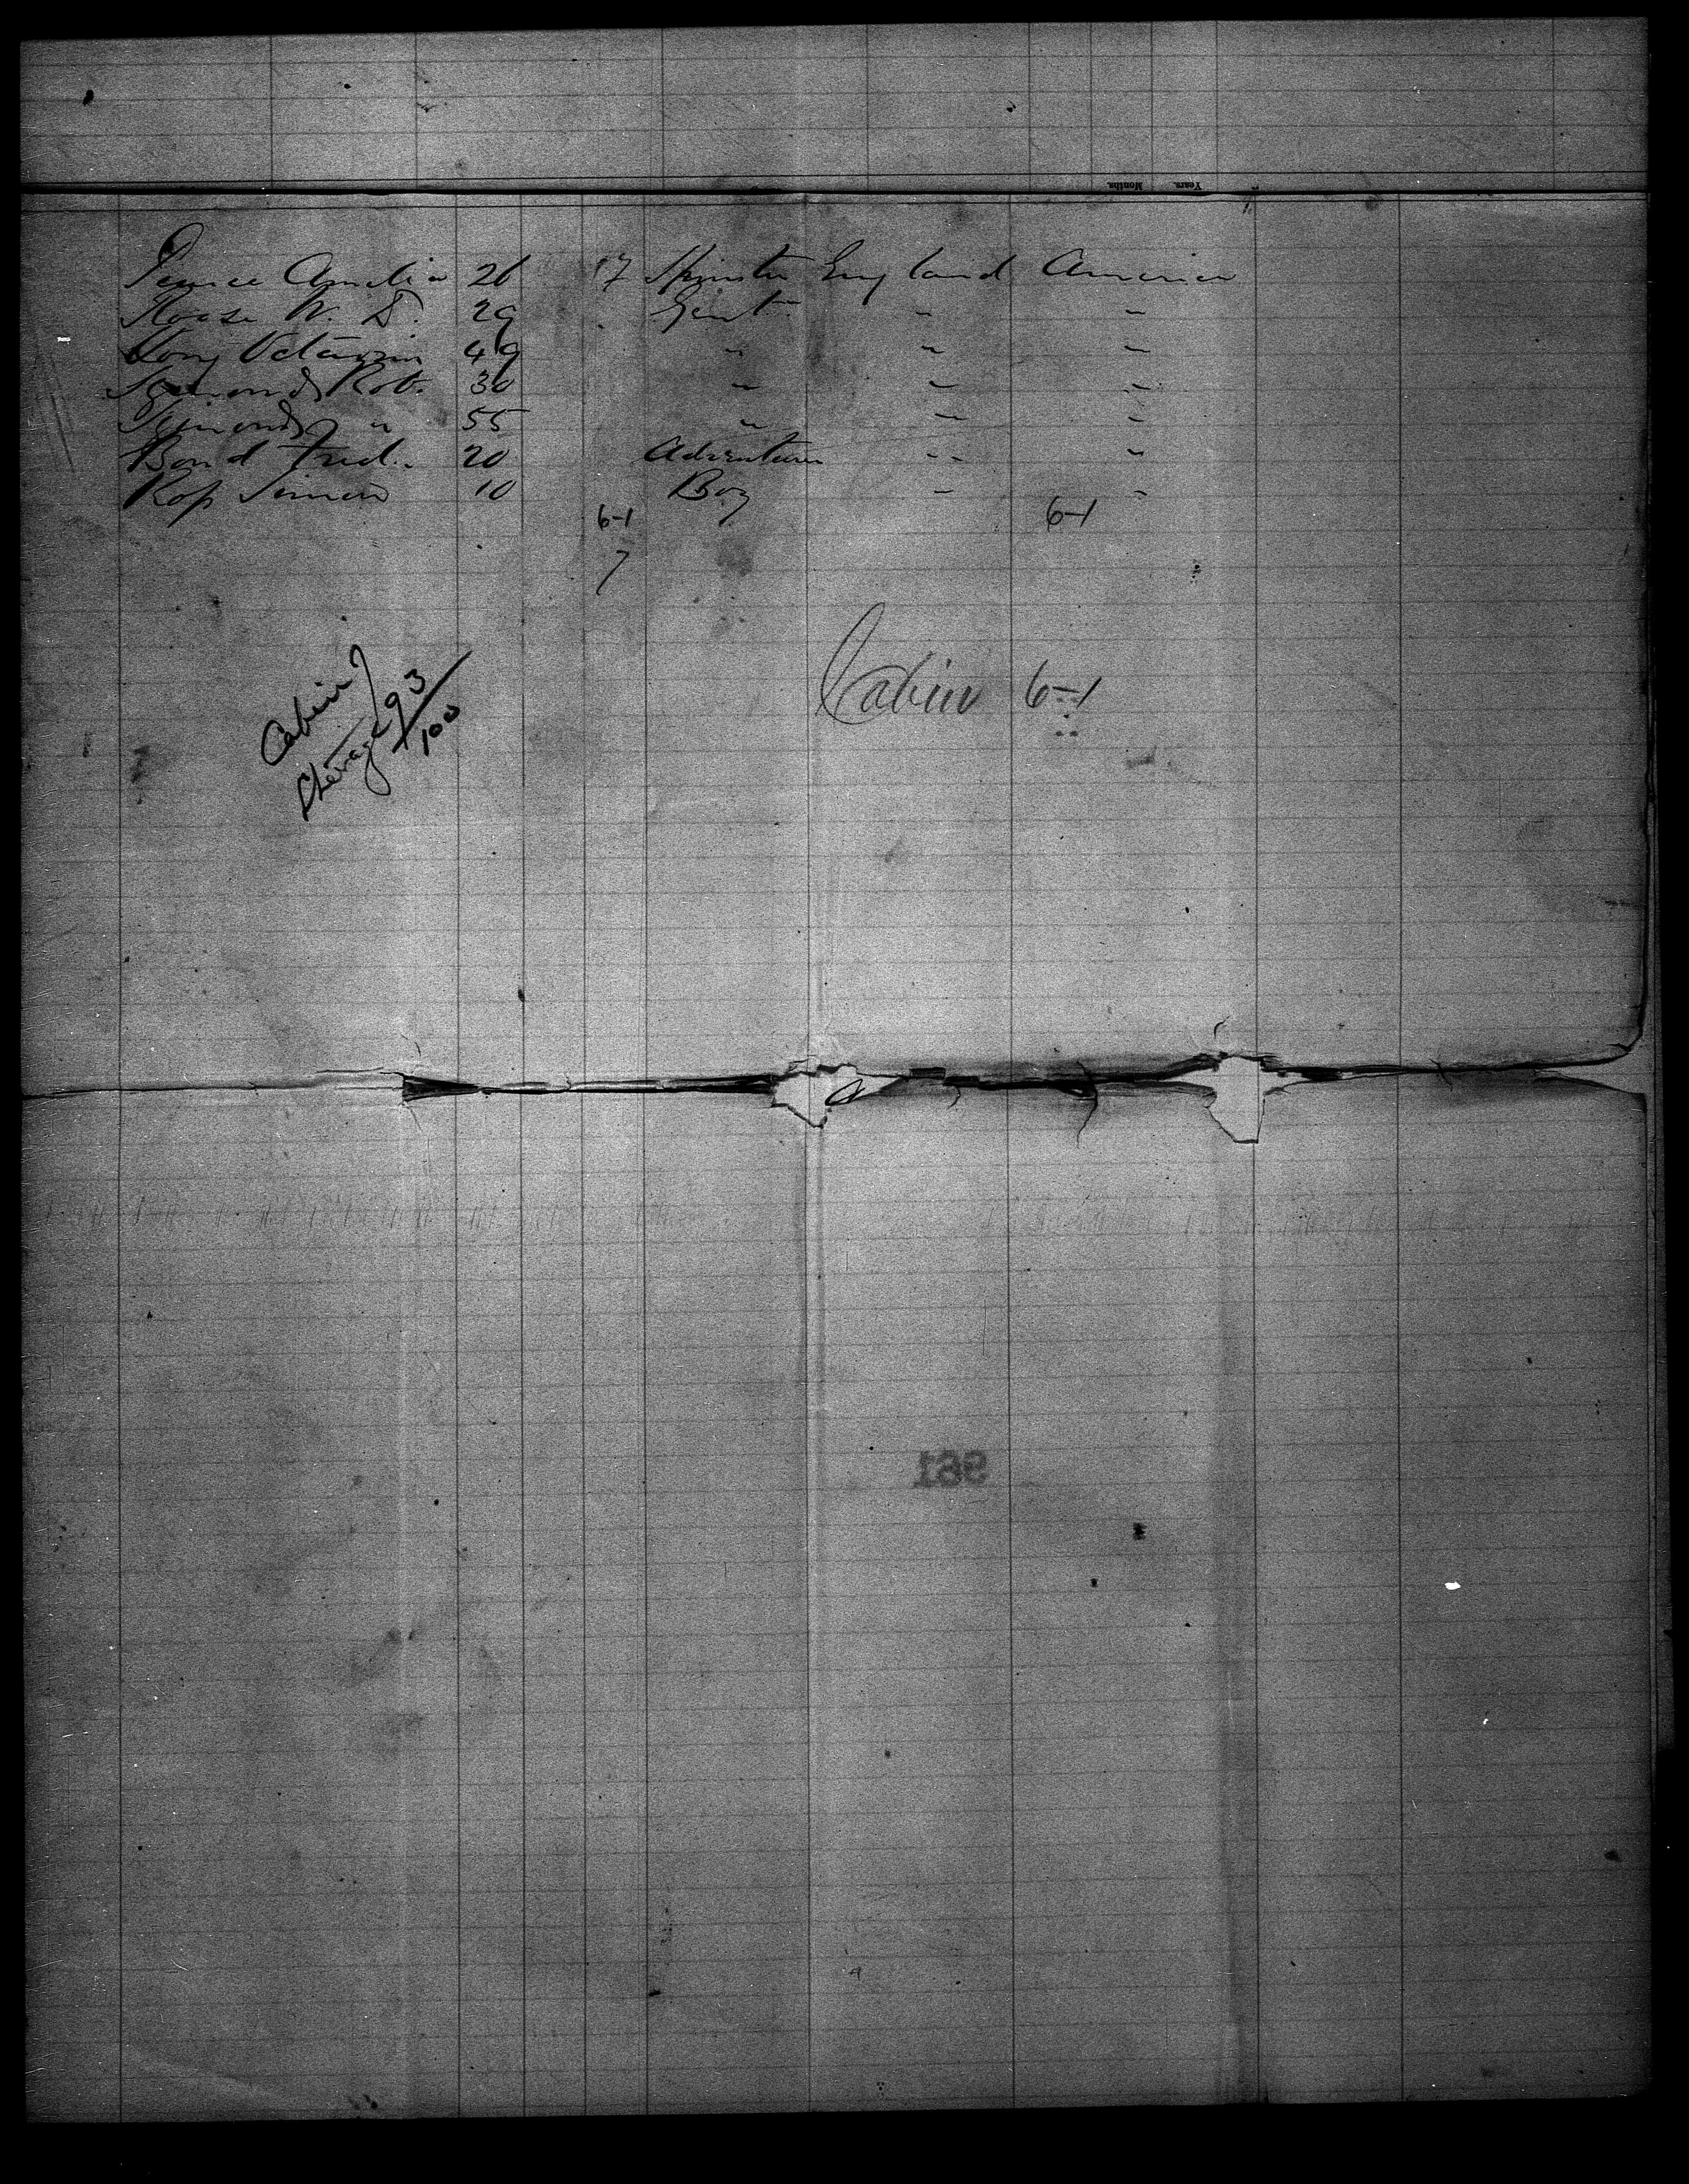 Months. Years.
Pearce Amelia 26 17 Spinster England America
W. D. 29 Gent " "
49 " " "
Symonds Rob. 30 " " "
Symonds " 55 " " "
Bond Fred. 20 " "
Ross Simon 10 Boy " "
6-1 6-1
7
Cabin 6-1
Cabin 7
Steerage 93
100
196